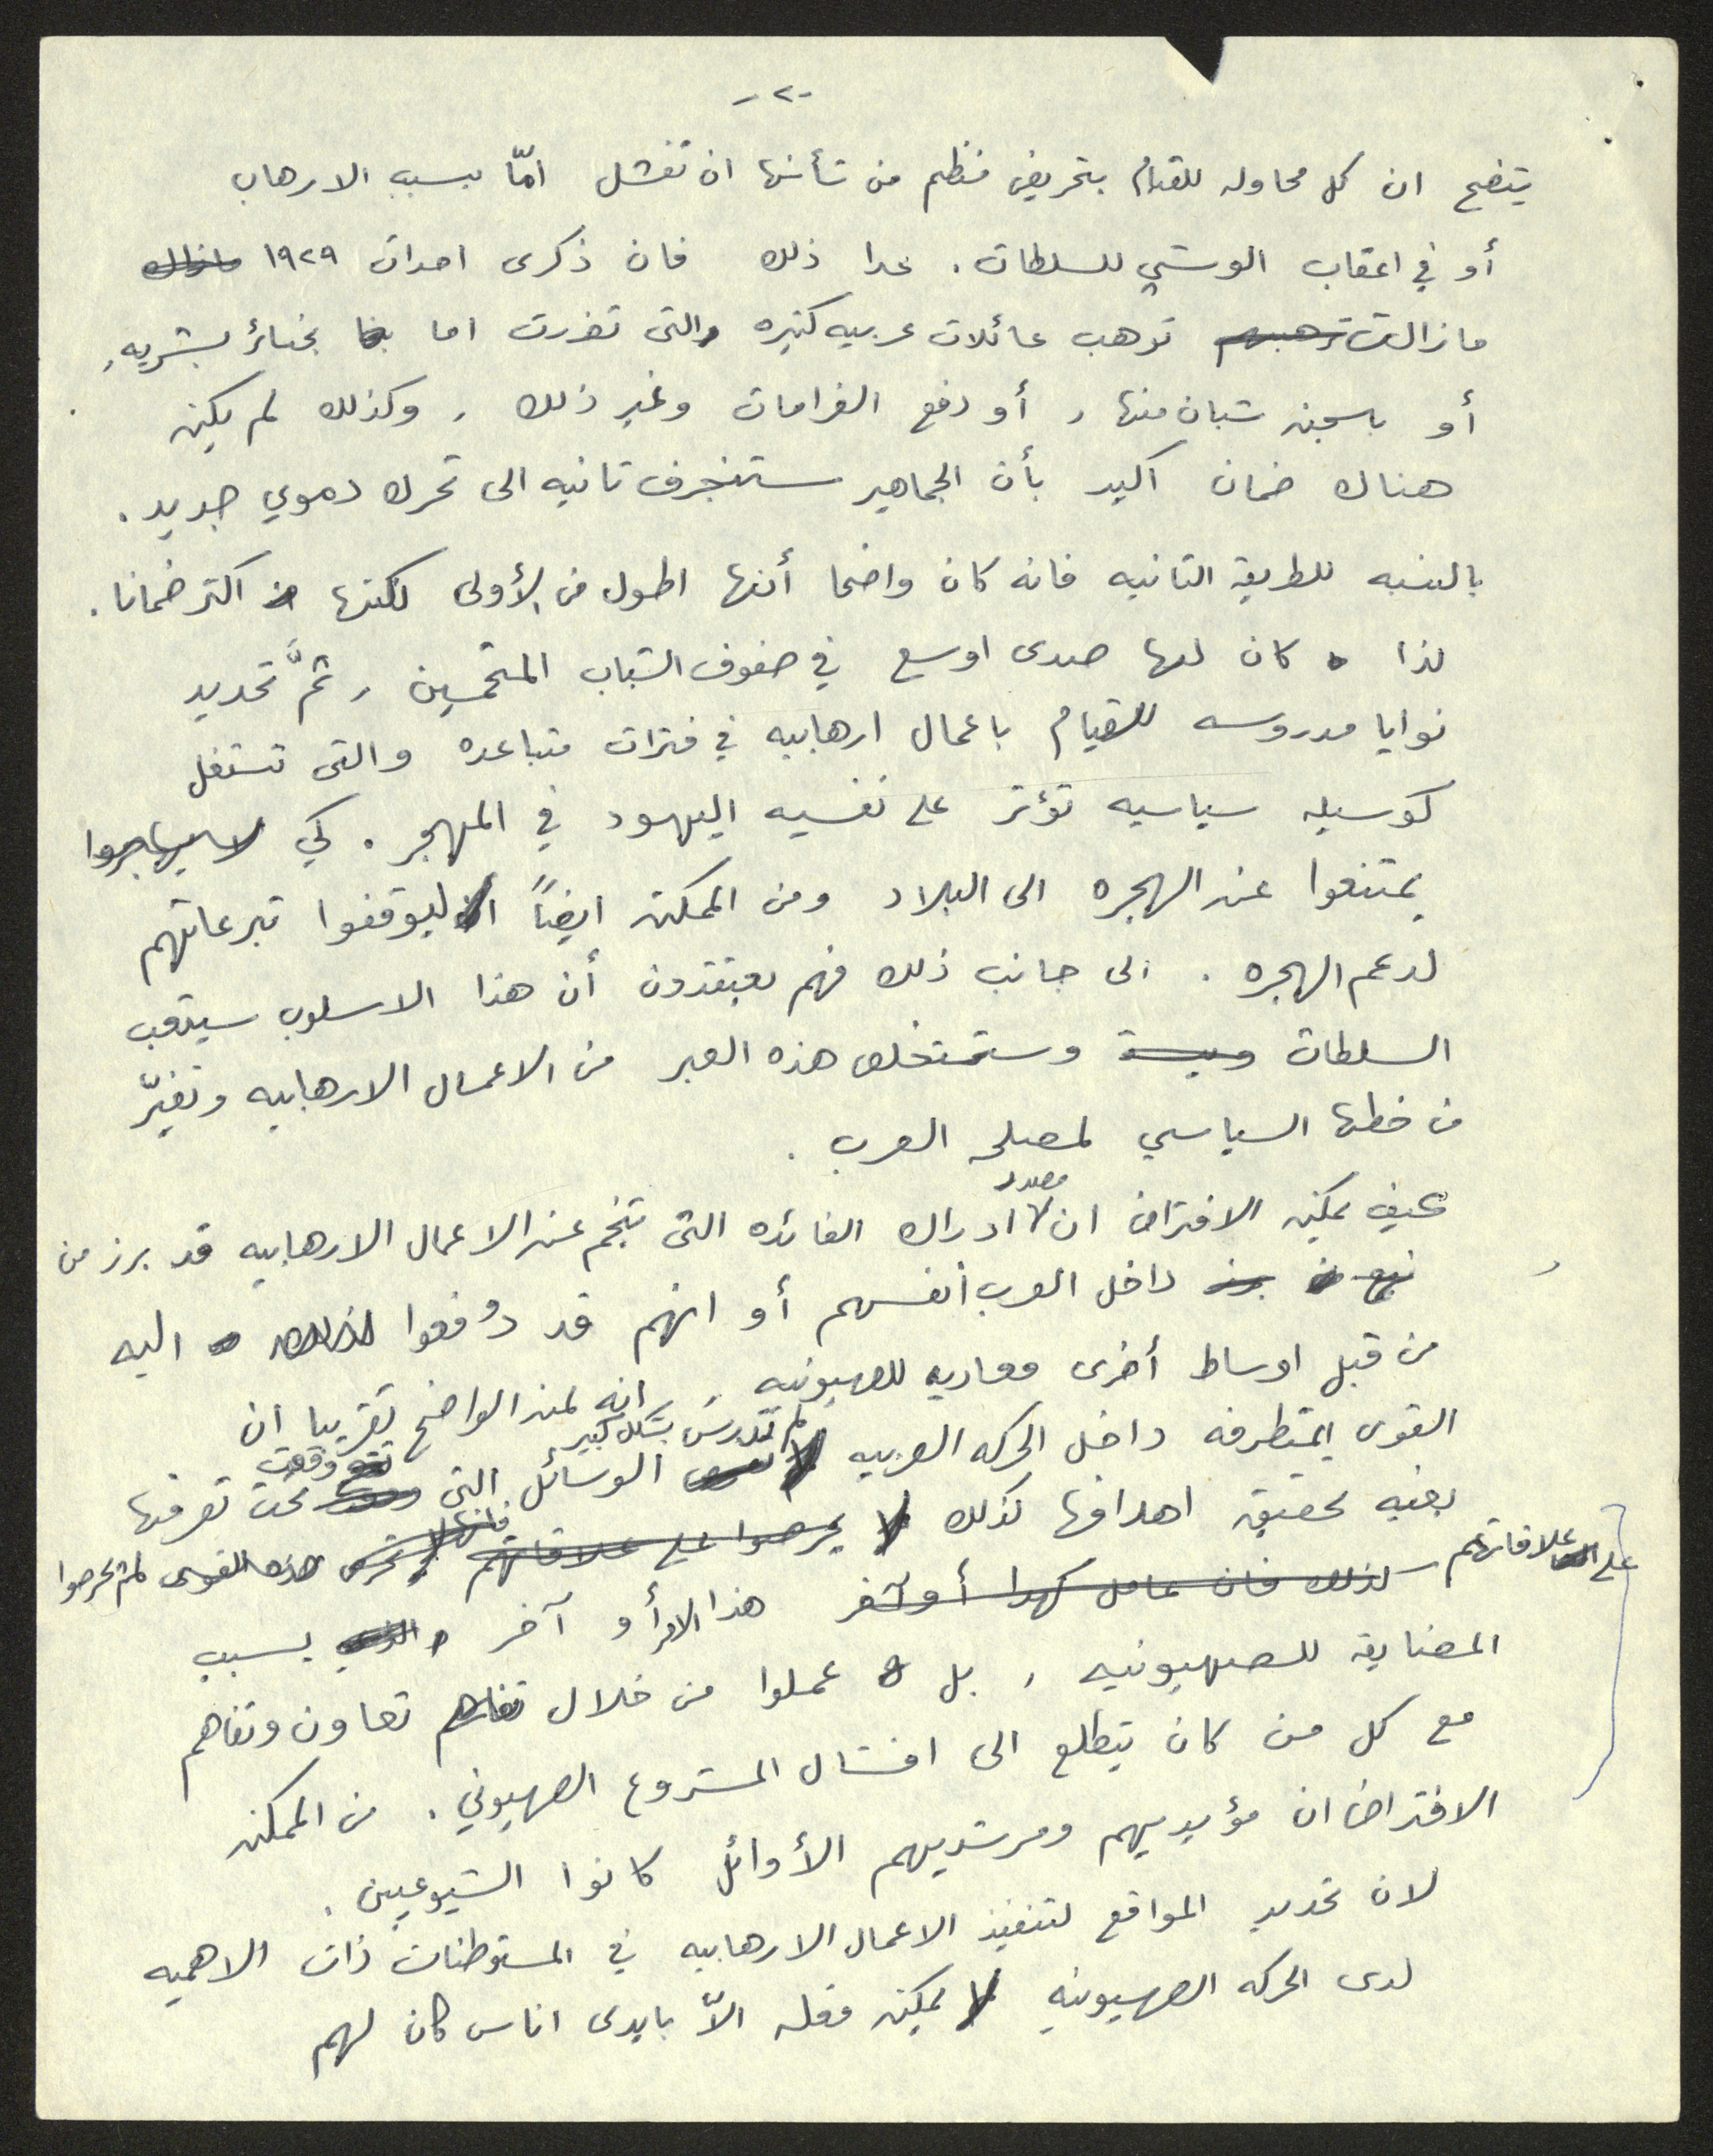 -٢-
يتضح ان كل محاوله للقيام بتحريض منظم من شأنها ان تفشل امّا بسبب الارهاب
أو في اعقاب الوشي للسلطات . عدا ذلك فان ذكرى احداث ١٩٢٩
مازالت ترهب عائلات عربيه كثيره والتى تضررت اما بخسائر بشريه,
أو بسجن شبان منها , أو دفع الغرامات وغير ذلك , وكذلك لم يكن
هناك ضمان اكيد بأن الجماهير ستنجرف ثانيه الى تحرك دموي جديد .
بالنسبه للطريقه الثانيه فانه كان واضحا أنها اطول من الأولى لكنها اكثر ضمانا .
لذا كان لها صدى اوسع في صفوف الشباب المتحمسين , تمَّ تحديد
نوايا مدروسه للقيام باعمال ارهابيه في فترات متباعده والتى تستغل
كوسيله سياسيه تؤثر على نفسيه اليهود في المهجر . كي
يمتنعوا عن الهجره الى البلاد ومن الممكن ايضاً ليوقفوا تبرعاتهم
لدعم الهجره . الى جانب ذلك فهم يعتقدون أن هذا الاسلوب سيتعب
السلطات وستستخلص هذه العبر من الاعمال الارهابيه وتغيّر
من خطها السياسي لمصلحه العرب .
كيف يمكن الافتراض ان مصدر ادراك الفائده التى تنجم عن الاعمال الارهابيه قد برز من
داخل العرب أنفسهم أو انهم قد دُفعوا اليه
من قبل اوساط أخرى معاديه للصهيونيه , انه لمن الواضح تقريبا ان
القوى المتطرفه داخل الحركه العربيه لم تدرس بشكل كبير الوسائل التى وقعت تحت تصرفها
بغيه تحقيق اهدافها كذلك هذه القوى لم يحرصوا
على علاقاتهم هذا الامر أو آخر بسبب
المضايقه للصهيونيه , بل عملوا من خلال تعاون وتفاهم
مع كل من كان يتطلع الى افشال المشروع الصهيوني . من الممكن
الافتراض ان مؤيديهم ومرشديهم الأوائل كانوا الشيوعيين .
لان تحديد المواقع لتنفيذ الاعمال الارهابيه في المستوطنات ذات الاهميه
لدى الحركه الصهيونيه لا يمكن فعله الاّ بايدى اناس كان لهم